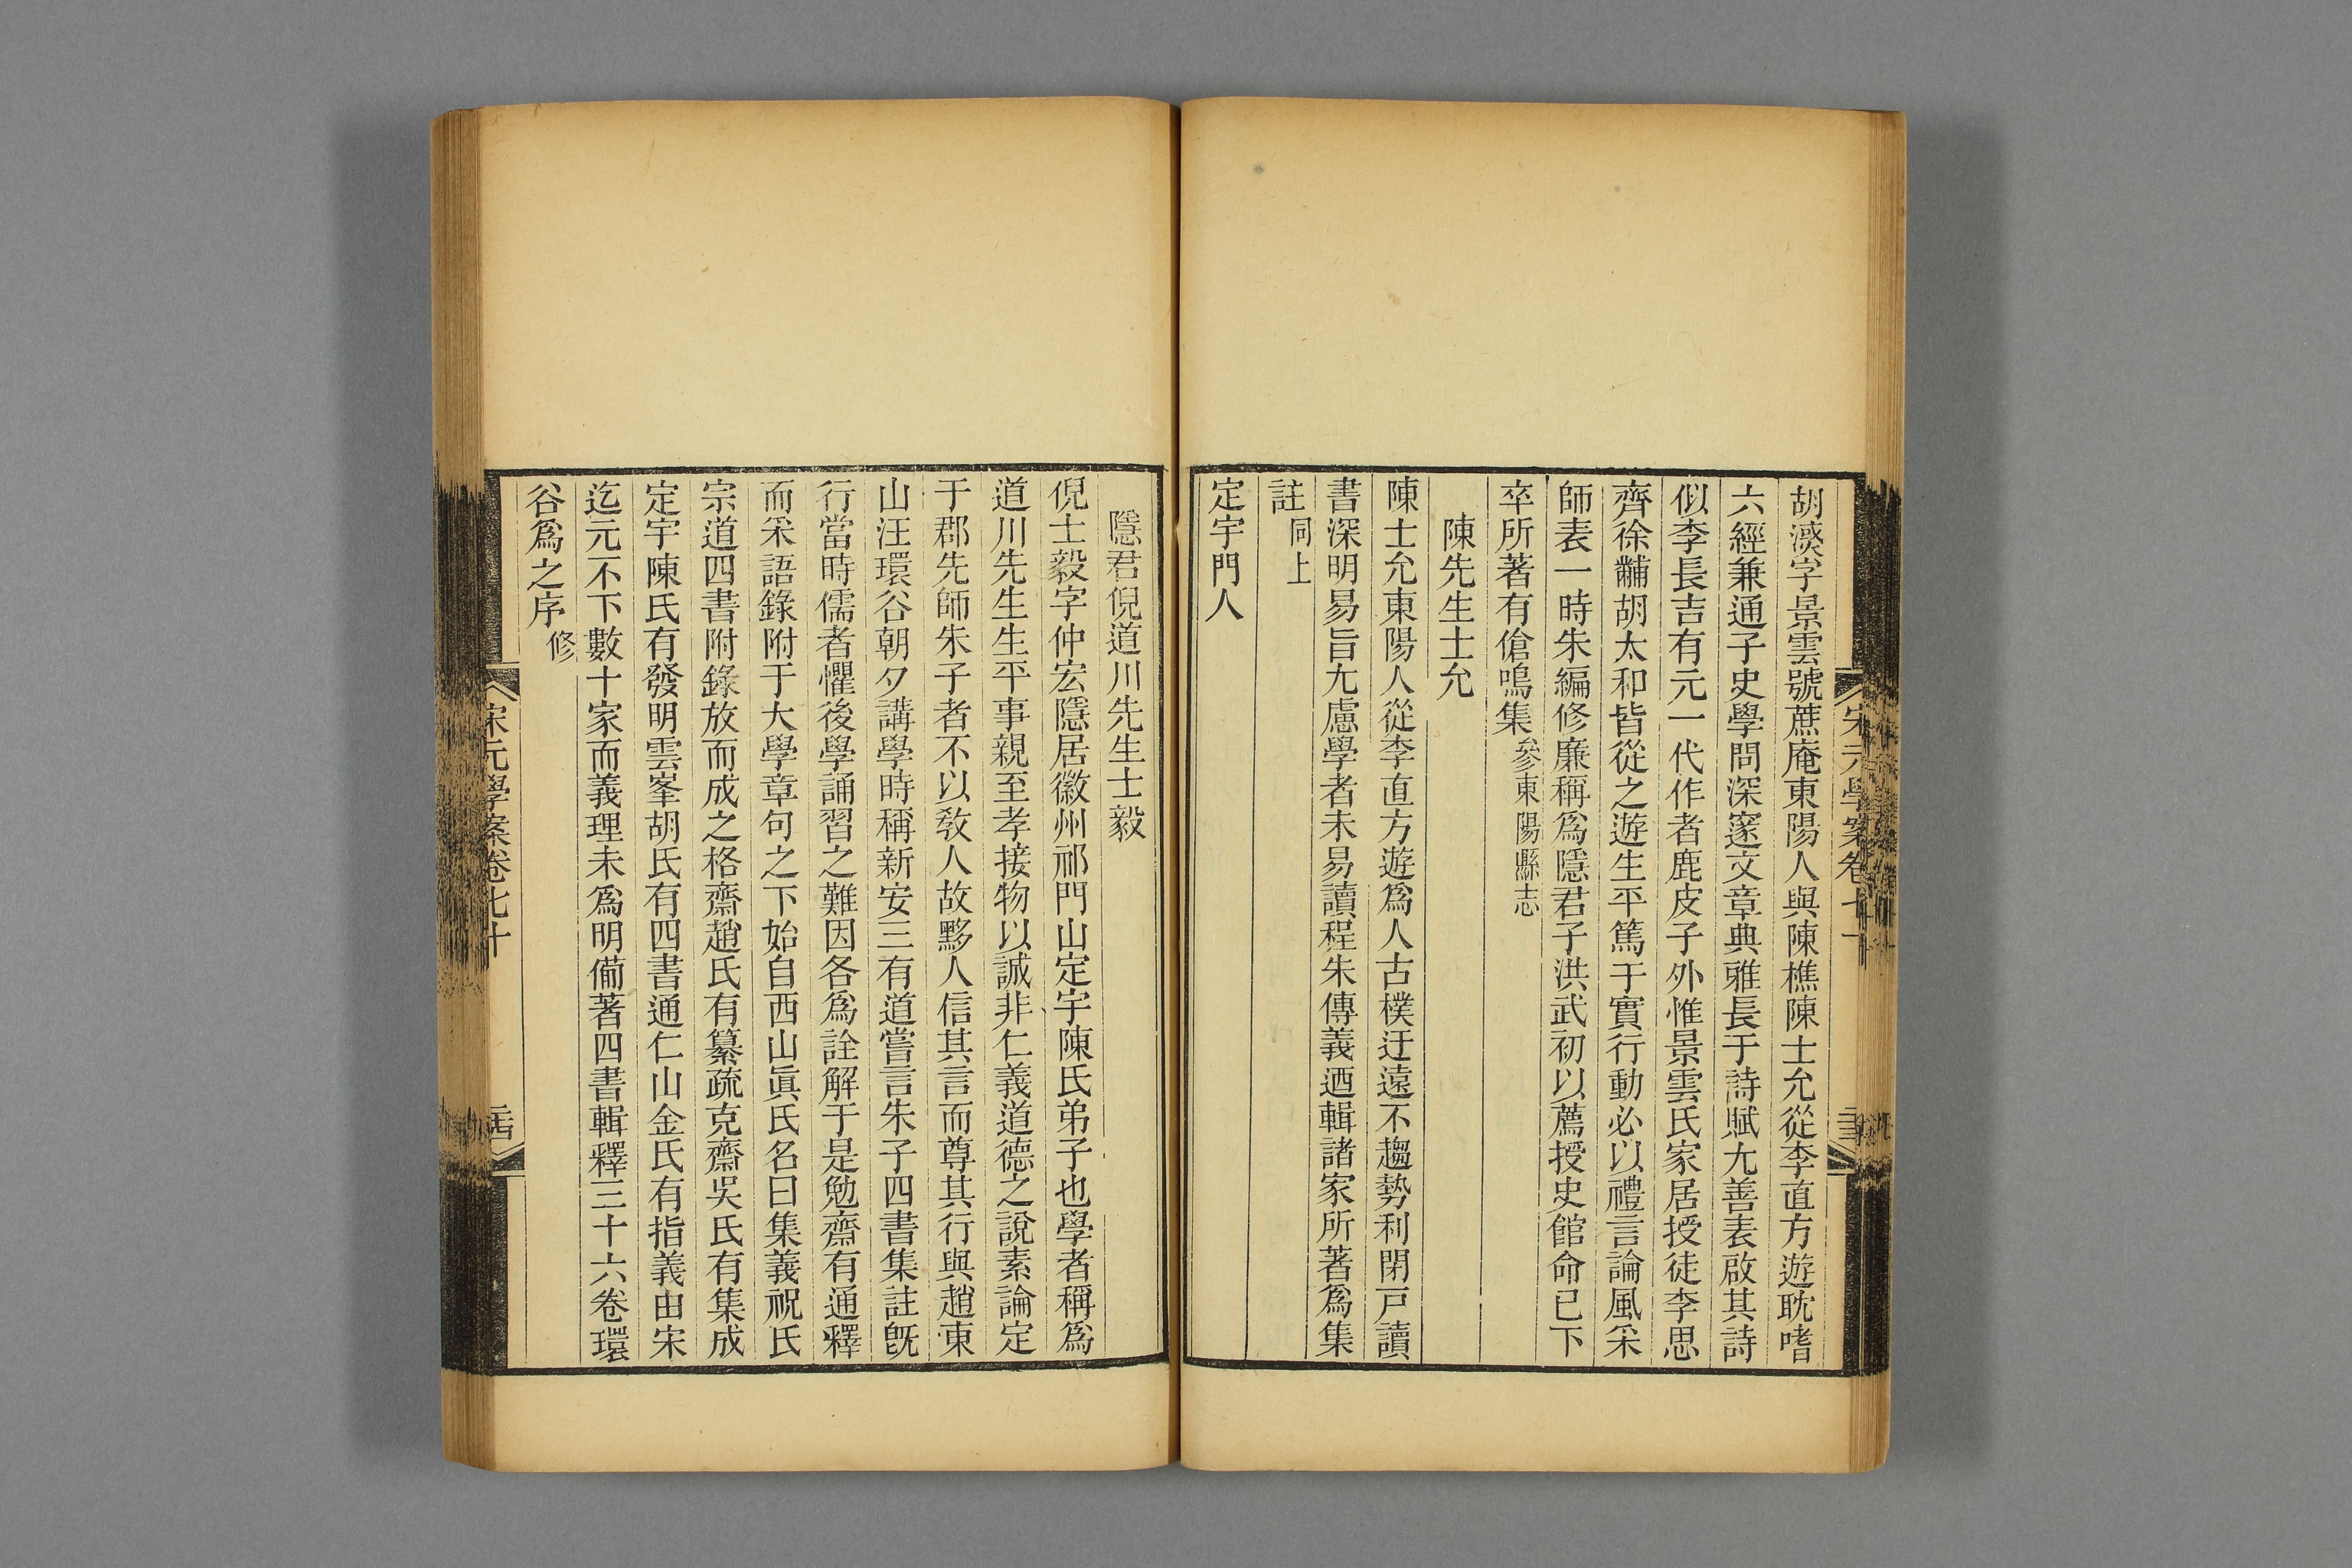 胡濙字景雲號蔗庵東陽人與陳樵陳士允從李直方遊耽嗜
六經兼通子史學問深邃文章典雅長于詩賦尤善表啟其詩
似李長吉有元一代作者鹿皮子外惟景雲氏家居授徒李思
齊徐黼胡太和皆從之遊生平篤于實行動必以禮言論風采
師表一時朱編修廉稱爲隱君子洪武初以薦授史館命已下
卒所著有傖鳴集參東陽縣志
陳先生士允
陳士允東陽人從李直方遊爲人古樸迂遠不趨勢利閉戸讀
書深明易旨尤慮學者未易讀程朱傳義迺輯諸家所著爲集
註同上
定宇門人
隱君倪道川先生士毅
倪士毅字仲宏隱居徽州祁門山定宇陳氏弟子也學者稱爲
道川先生生平事親至孝接物以誠非仁義道德之說素論定
于郡先師朱子者不以敎人故黟人信其言而尊其行與趙東
山汪環谷朝夕講學時稱新安三有道嘗言朱子四書集註旣
行當時儒者懼後學誦習之難因各爲詮解于是勉齋有通釋
而采語錄附于大學章句之下始自西山眞氏名曰集義祝氏
宗道四書附錄放而成之格齋趙氏有纂疏克齋吳氏有集成
定宇陳氏有發明雲峯胡氏有四書通仁山金氏有指義由宋
迄元不下數十家而義理未爲明備著四書輯釋三十六卷環
谷爲之序修
宋元學案卷七十